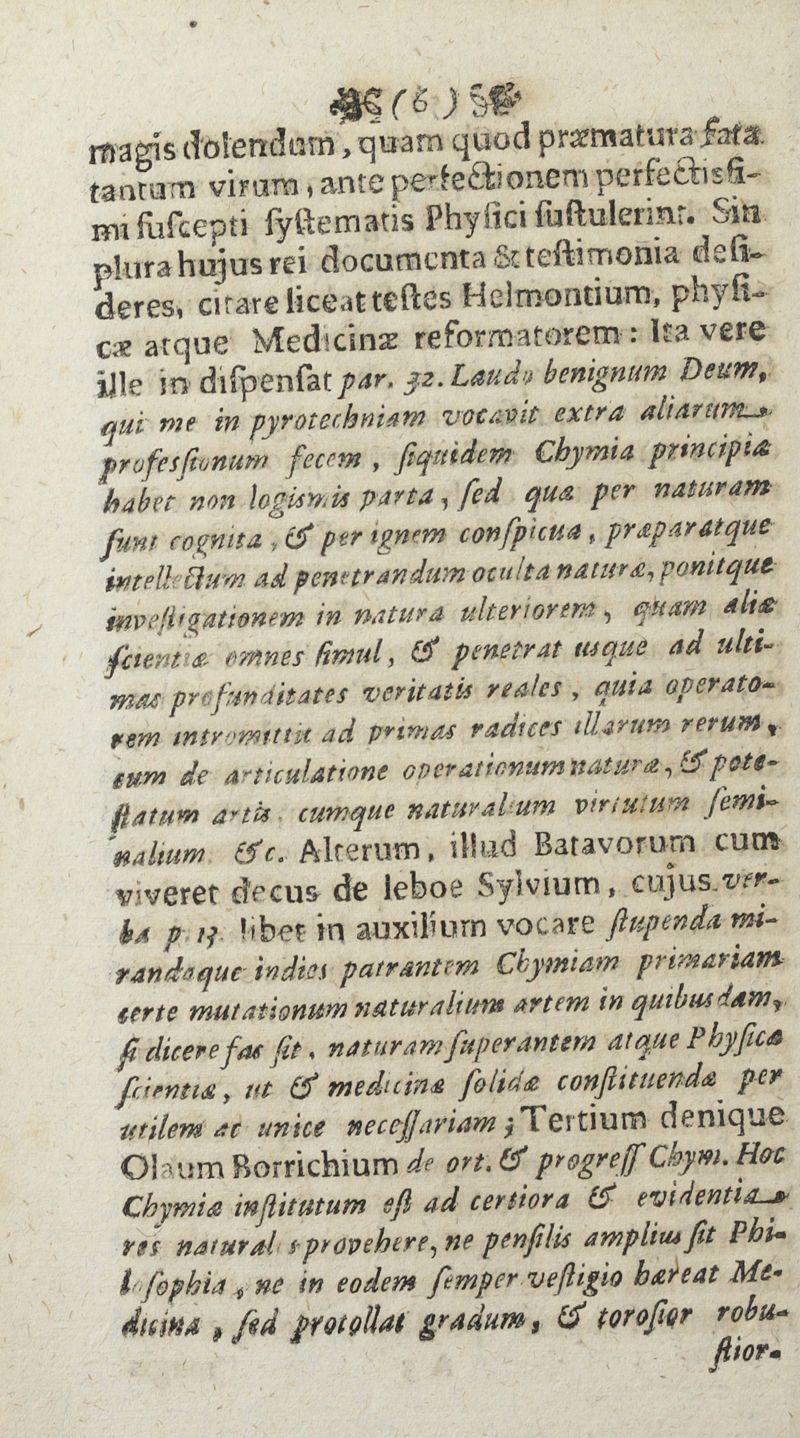 (6)
magis dolendum, quam quod præmatura fata
tantum virum, ante perfectionem perfectisſi-
mi ſuſcepti ſyſtematis Phyſici ſuſtulerint. Sin
plura hujus rei documenta & teſtimonia deſi-
deres, citare liceat teſtes Helmontium, phyſi-
cæ atque Medicinæ reformatorem: Ita vere
ille in diſpenſat par. 32. Laudo benignum Deum,
qui me in pyrotechniam vocavit extra aliarum
profesſionum fecem, ſiquidem Chymia principia
habet non logismis parta, ſed quæ per naturam
ſunt cognita, & per ignem conſpicua, præparatque
intellectum ad penetrandum oculta naturæ, ponitque
inveſtigationem in natura ulteriorem, quam aliæ
ſcientiæ omnes ſimul, & penetrat usque ad ulti-
mas profunditates veritatis reales, quia operato-
rem intromittit ad primas radices illarum rerum,
cum de articulatione operationum naturæ, & pote-
ſtatum artis, cumque naturalium virtutum ſemi-
nalium &c. Alterum, illud Batavorum cum
viveret decus de leboe Sylvium, cujus ver-
ba p. 13. libet in auxilium vocare ſtupenda mi-
randaque indies patrantem Chymiam primariam
certe mutationum naturalium artem in quibusdam,
ſi dicere fas ſit, naturam ſuperantem atque Phyſicæ
ſcientiæ, ut & medicinæ ſolidæ conſtituendæ per
utilem ac unice neceſſariam; Tertium denique
Olaum Borrichium de ort. & progreſſ Chym. Hoc
Chymiæ inſtitutum eſt ad certiora & evidentia
res naturales provehere, ne penſilis amplius ſit Phi-
loſophia, ne in eodem ſemper veſtigio hæreat Me-
dicina, ſed protollat gradum, & toroſior robu-
ſtior-